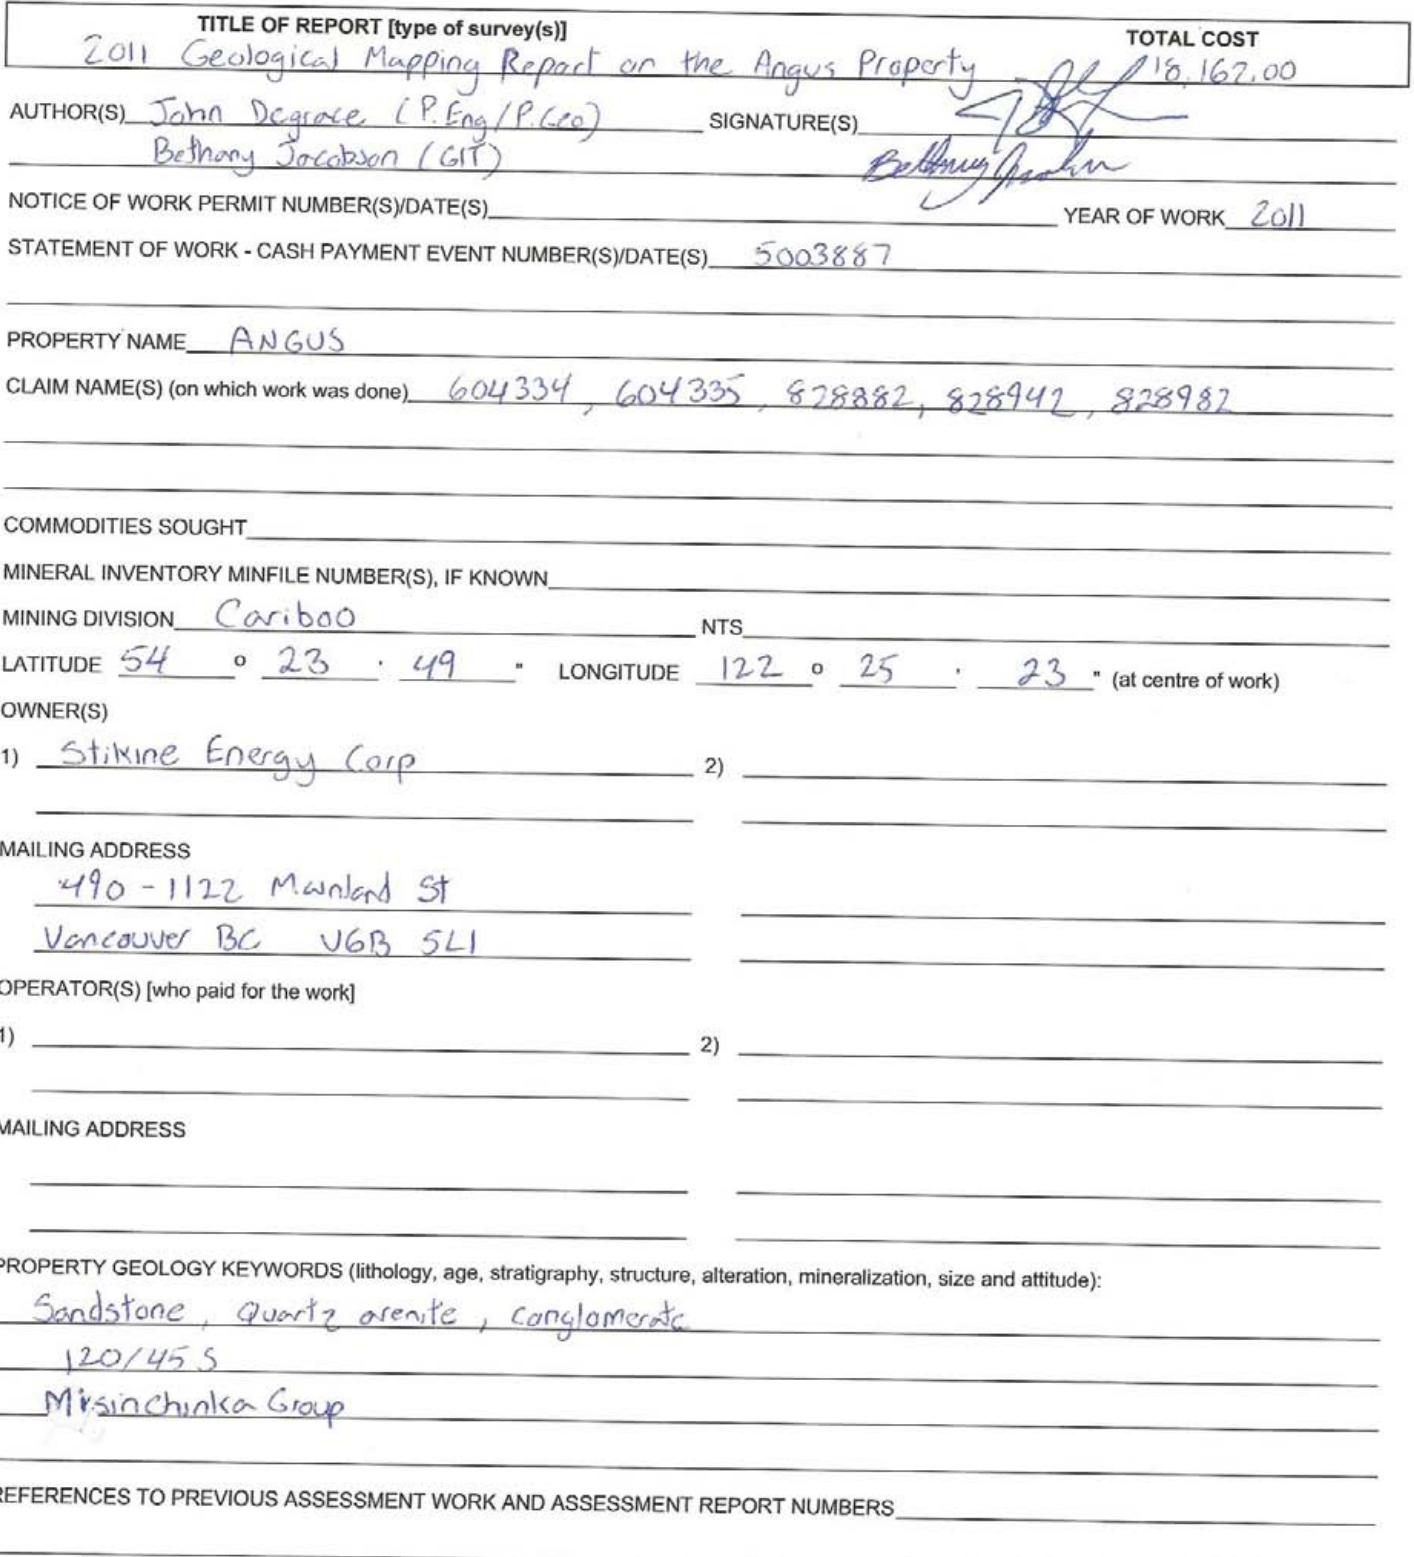 TITLE OF REPORT [type of survey(s)] TOTAL COST
2011 Geological Mapping Report on the Angus Property 18,162.00
AUTHOR(S) John Degrace (P.Eng/P.Geo) SIGNATURE(S)
Bethany Jacobson (GIT)
NOTICE OF WORK PERMIT NUMBER(S)/DATE(S) YEAR OF WORK 2011
STATEMENT OF WORK - CASH PAYMENT EVENT NUMBER(S)/DATE(S) 5003887
PROPERTY NAME ANGUS
CLAIM NAME(S) (on which work was done) 604334, 604335, 828882, 828942, 828982
COMMODITIES SOUGHT
MINERAL INVENTORY MINFILE NUMBER(S), IF KNOWN
MINING DIVISION Cariboo NTS
LATITUDE 54 o 23 ' 49 " LONGITUDE 122 o 25 ' 23 " (at centre of work)
OWNER(S)
1) Stikine Energy Corp 2)
MAILING ADDRESS
490 - 1122 Mainland St
Vancouver BC V6B 5L1
OPERATOR(S) [who paid for the work]
1) 2)
MAILING ADDRESS
PROPERTY GEOLOGY KEYWORDS (lithology, age, stratigraphy, structure, alteration, mineralization, size and attitude):
Sandstone, Quartz arenite, conglomerate
120/45 S
Misinchinka Group
REFERENCES TO PREVIOUS ASSESSMENT WORK AND ASSESSMENT REPORT NUMBERS